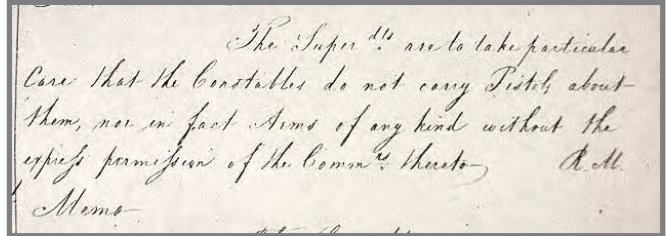 The Super^dts are to take particular
Care that the Constables do not carry Pistols about
them, nor in fact Arms of any kind without the
express permission of the Comm^rs thereto R. M.
Memo